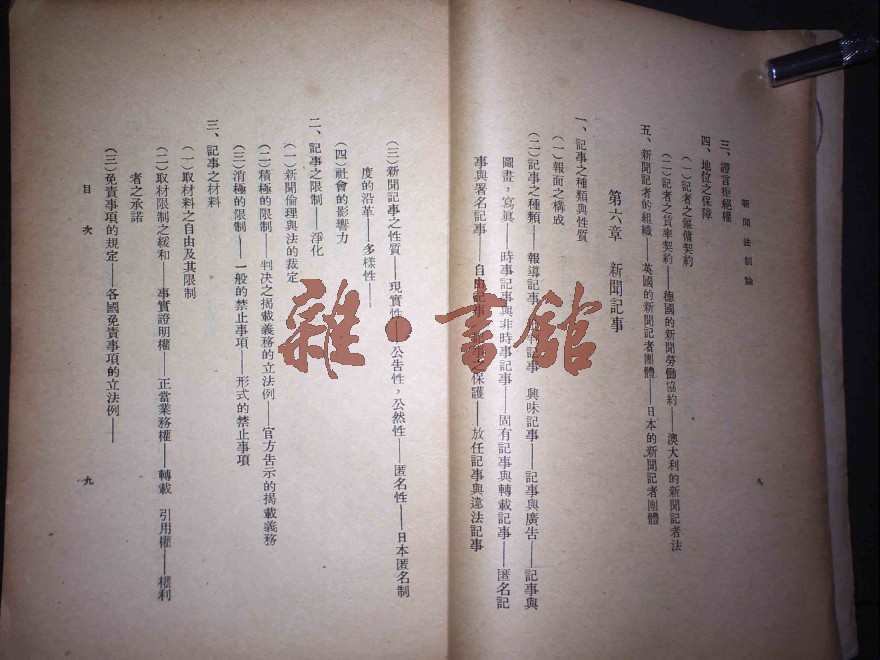 新聞法制論
三、證言拒絕權
四、地位之保障
(一)記者之僱傭契約
(二)記者之賃率契約——德國的新聞勞働協約——澳大利的新聞記者法
五、新聞記者的組織——英國的新聞記者團體——日本的新聞記者團體
第六章 新聞記事
一、記事之種類與性質
(一)報面之構成
(二)記事之種類——報導記事 記事 興味記事——記事與廣告——記事與
圖畫，寫眞——時事記事與非時事記事——固有記事與轉載記事——匿名記
事與署名記事 自由記事 之保護——放任記事與違法記事
八
(三)新聞記事之性質——現實性——公告性，公然性——匿名性——日本匿名制
度的沿革——多樣性——
(四)社會的影響力
二、記事之限制——淨化
(一)新聞倫理與法的裁定
(二)積極的限制——判決之揭載義務的立法例——官方告示的揭載義務
(三)消極的限制——一般的禁止事項——形式的禁止事項
三、記事之材料
(一)取材料之自由及其限制
(二)取材限制之緩和——事實證明權——正當業務權——轉載 引用權——權利
者之承諾
(三)免責事項的規定——各國免責事項的立法例——
目次
九
雜·書館